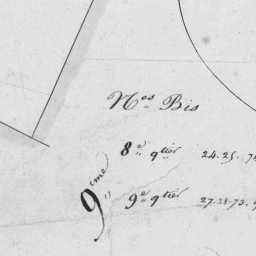 Nos Bis
8e qtier 24.25.
9eme
9e qtier 27.28.73.